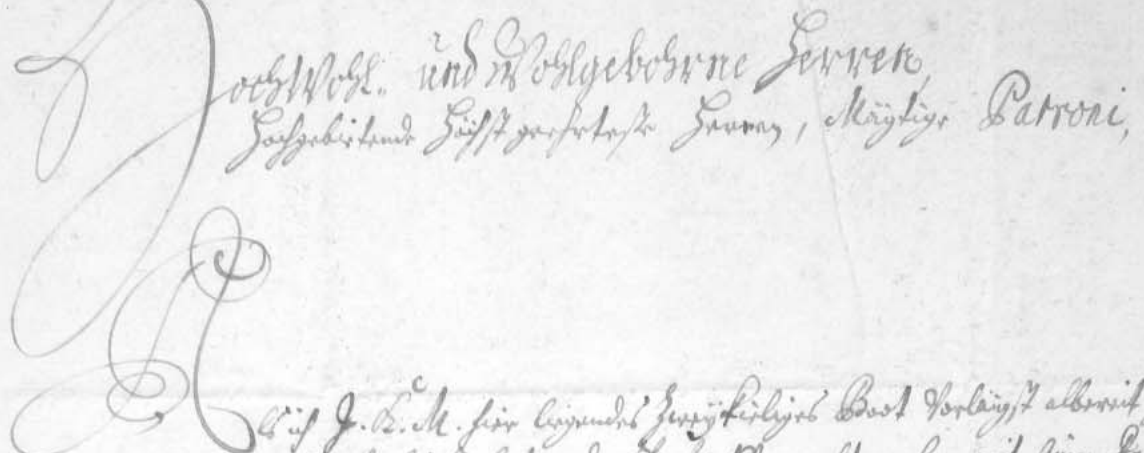 HochWohl- und Wohlgebohrne Herren,
Hochgebietende Höchst geehrteste Herren, Mächtige Patroni,
Als ich J. K. M. hier liegendes Zweykieliges Boot Vorlängst albereit